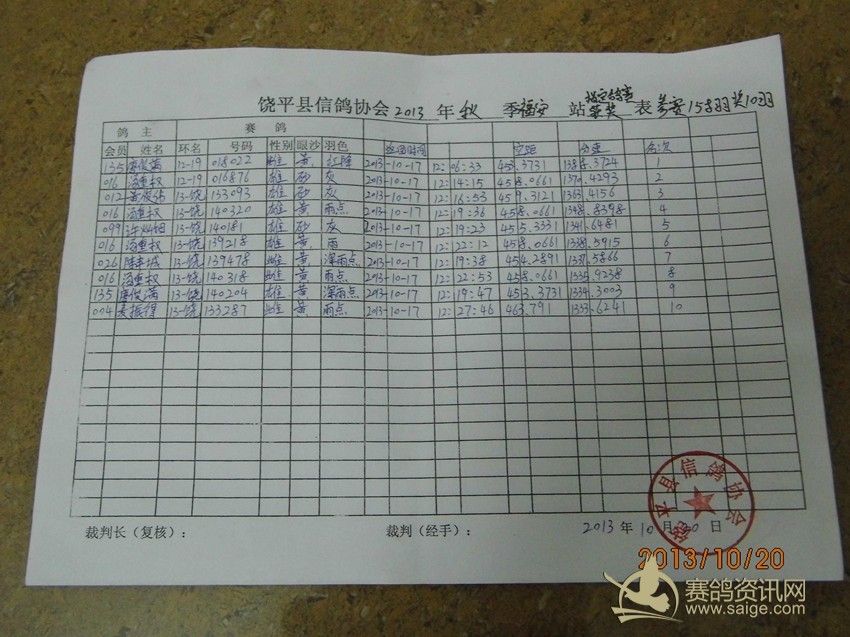 饶平县信鸽协会2013年秋季福安站 表参赛158羽奖10羽
鸽主 赛鸽
会员 姓名 环名 号码 性别 眼沙 羽色 返回时间 空距 分速 名次
135 12-19 018022 雄 黄 2013-10-17 12:06:33 453.3731
016 汤重权 12-19 016876 雄 砂 灰 2013-10-17 12:14:15 458.0661 1370.4293 2
012 13-饶 133093 雄 砂 灰 2013-10-17 12:16:53 459.3121 1363.4156 3
016 汤重权 13-饶 140320 雄 黄 雨点 2013-10-17 12:19:36 458.0661 1348.8398 4
099 13-饶 140181 雄 砂 灰 2013-10-17 12:19:23 455.3331 1341.6481 5
016 汤重权 13-饶 139218 雄 黄 雨 2013-10-17 12:22:12 458.0661 1338.5915 6
026 13-饶 139478 雌 黄 深雨点 2013-10-17 12:19:38 454.2891 1337.5866 7
016 汤重权 13-饶 140318 雌 黄 雨点 2013-10-17 12:22:53 458.0661 1335.9238 8
135 13-饶 140204 雄 黄 深雨点 2013-10-17 12:19:47 453.3731 1334.3003 9
004 13-饶 133287 雌 黄 雨点 2013-10-17 12:27:46 463.791 1333.6241 10
裁判长（复核）： 裁判（经手）： 2013年10月20日
饶平县信鸽协会
2013/10/20
赛鸽资讯网
www.saige.com